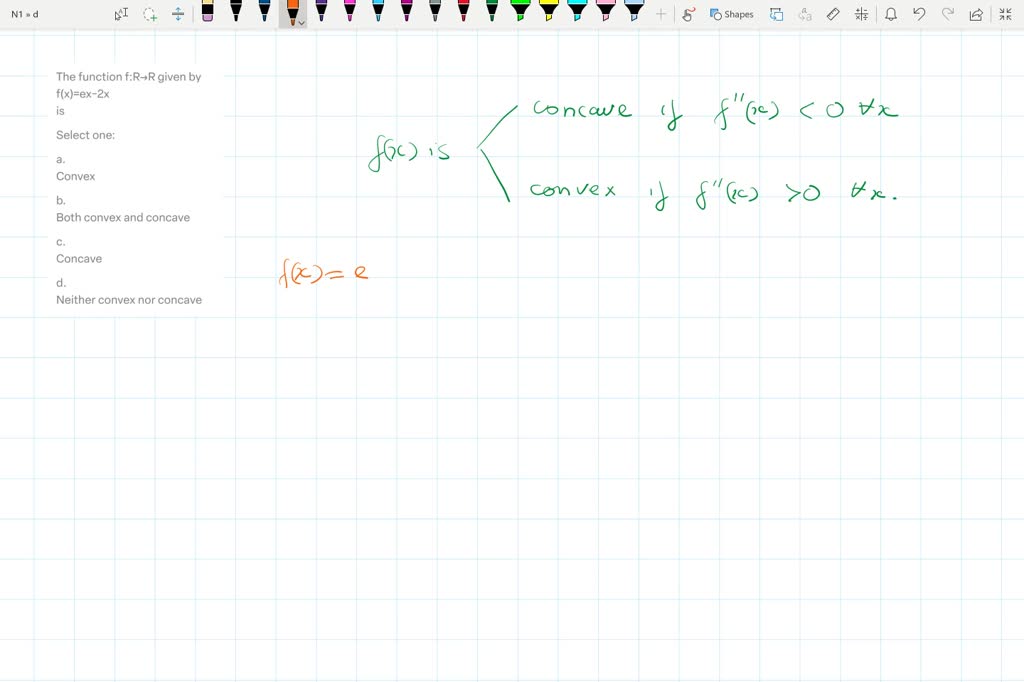 N1 » d
Shapes
The function f:R→R given by
f(x)=ex−2x
is
Select one:
a.
Convex
b.
Both convex and concave
c.
Concave
d.
Neither convex nor concave
f(x) is
concave if f''(x) < 0 ∀x
convex if f''(x) >0 ∀x.
f(x) = e